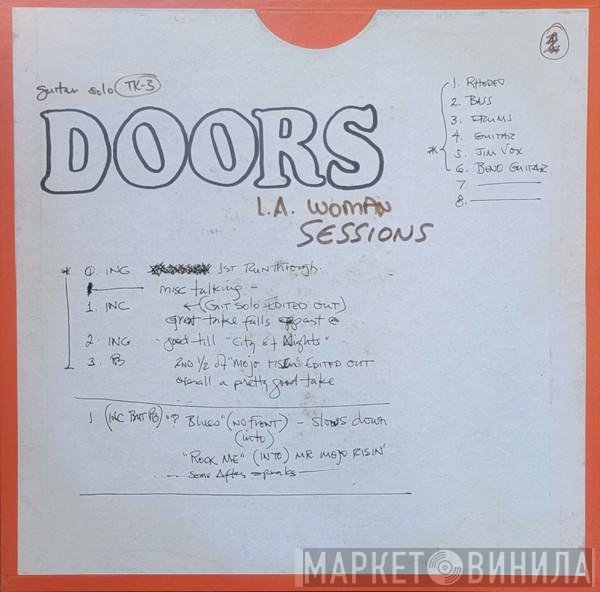 guitar solo TK-3
DOORS
L.A. WOMAN
SESSIONS
1. RHODES
2. BASS
3. DRUMS
4. GUITAR
* 5. JIM VOX
6. BEND GUITAR
7.
8.
* 0 ING 1ST RUN through.
misc talking -
1. INC ← (GIT SOLO EDITED OUT)
great take falls apart @
2. ING - good till "City of Nights"
3. PB 2ND 1/2 of "Mojo RISIN" EDITED OUT
overall a pretty good take
1 (INC BUT PB) "? Blues" (NO FRONT) - slows down
(into)
"ROCK ME" (INTO) MR MOJO RISIN'
-- some After speaks
МАРКЕТ ВИНИЛА